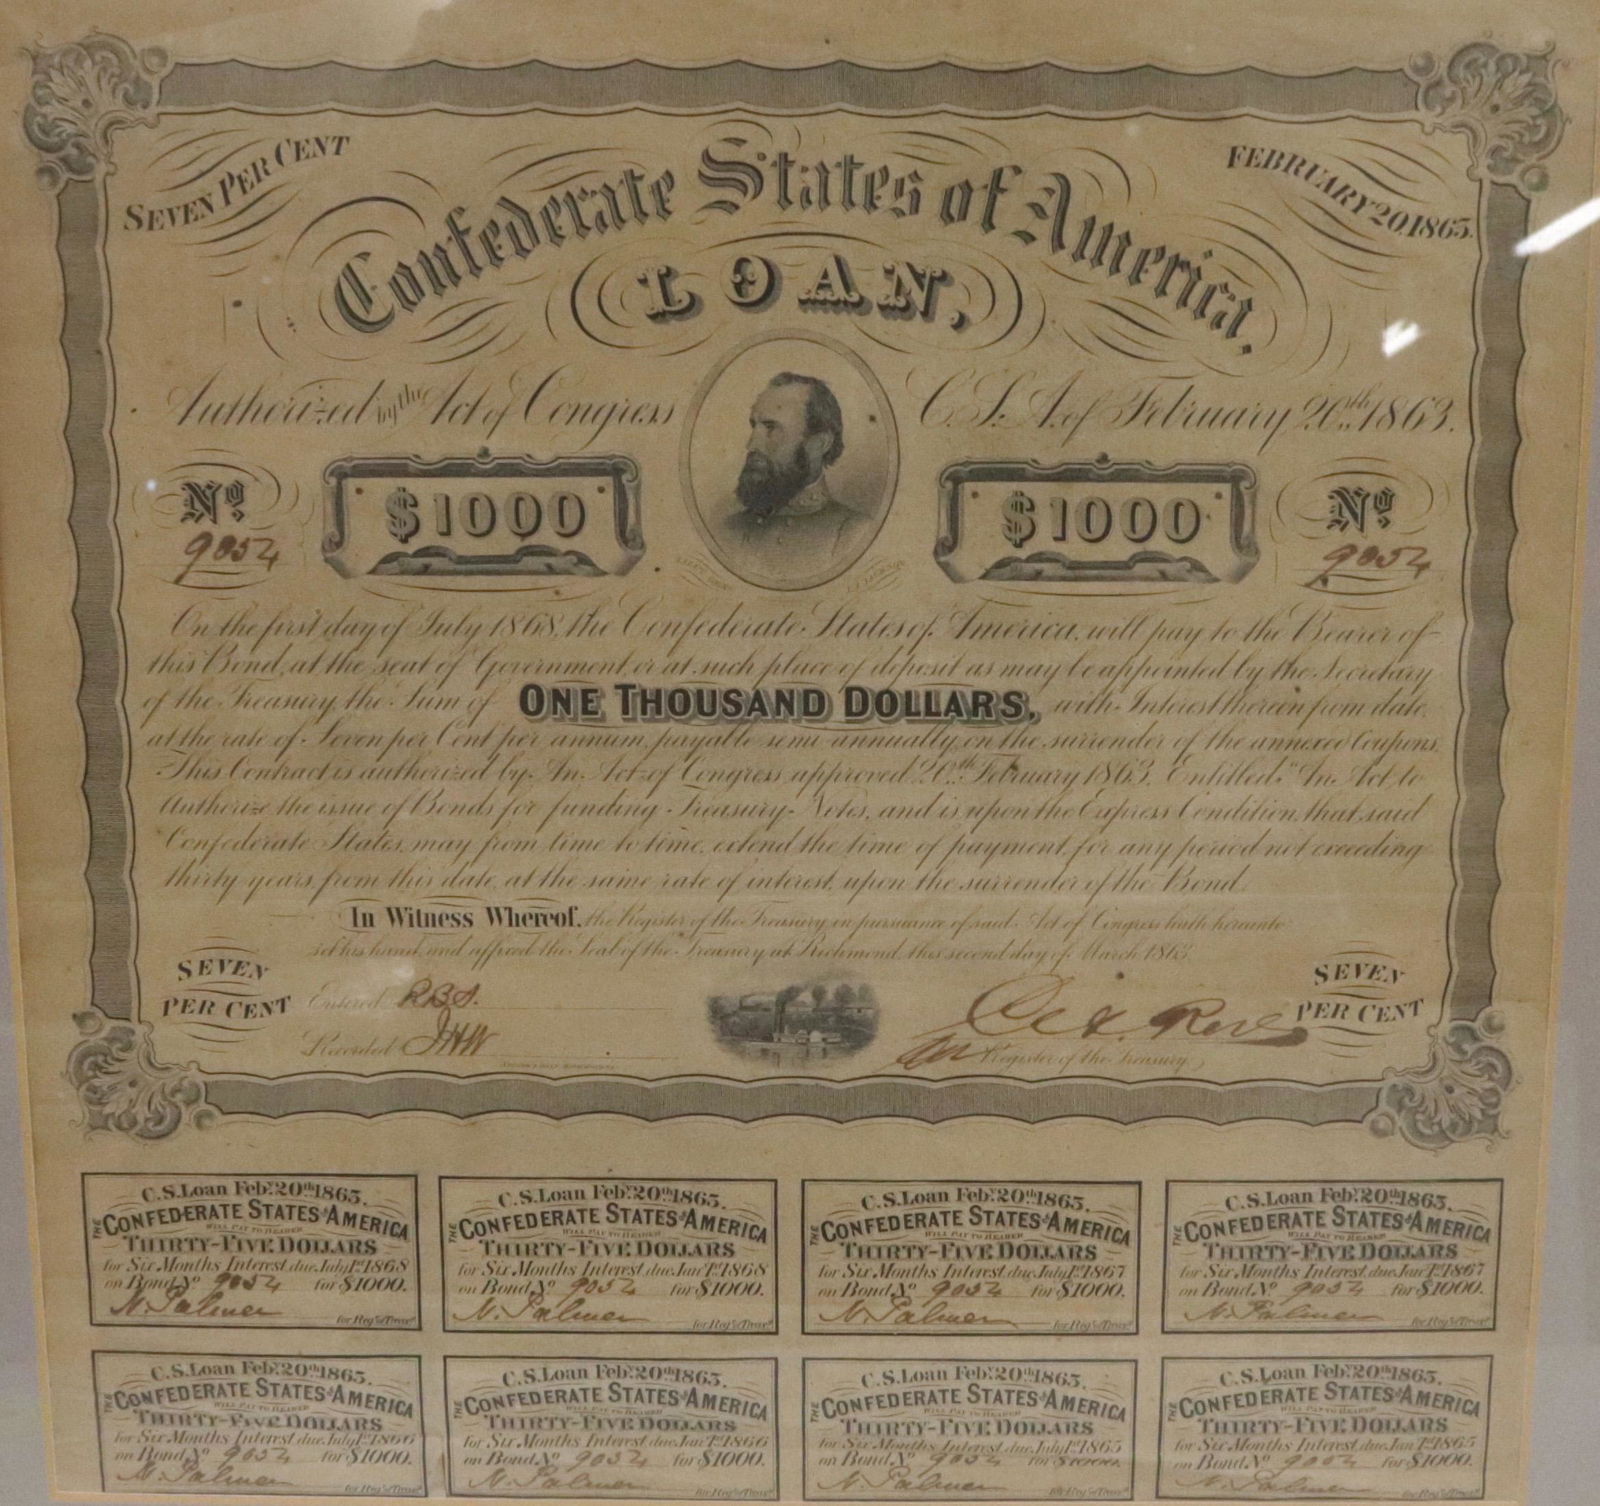 SEVEN PER CENT
FEBRUARY 20, 1863.
Confederate States of America.
LOAN,
Authorized by the Act of Congress C.S.A. of February 20th 1863.
No. $1000 $1000 No.
9054 9054
LIEUT. GEN. T. J. JACKSON
On the first day of July 1868, the Confederate States of America, will pay to the Bearer of
this Bond, at the seat of Government or at such place of deposit as may be appointed by the Secretary
of the Treasury, the Sum of ONE THOUSAND DOLLARS, with Interest thereon from date,
at the rate of Seven per Cent per annum, payable semi annually, on the surrender of the annexed Coupons.
This Contract is authorized by An Act of Congress approved 20th February 1863. Entitled "An Act, to
Authorize the issue of Bonds for funding Treasury Notes, and is upon the Express Condition, that said
Confederate States, may from time to time, extend the time of payment, for any period not exceeding
thirty years, from this date, at the same rate of interest, upon the surrender of the Bond.
In Witness Whereof, the Register of the Treasury, in pursuance of said Act of Congress hath hereunto
set his hand, and affixed the Seal of the Treasury at Richmond, this second day of March 1863.
SEVEN PER CENT
SEVEN PER CENT
Entered
Recorded JHW
Register of the Treasury,
C.S. Loan Feby. 20th 1863.
THE CONFEDERATE STATES OF AMERICA
WILL PAY TO BEARER
THIRTY-FIVE DOLLARS
for Six Months Interest, due July 1st 1868
on Bond No 9054 for $1000.
N. Palmer
for Regr. of Treasy.
C.S. Loan Feby. 20th 1863.
THE CONFEDERATE STATES OF AMERICA
WILL PAY TO BEARER
THIRTY-FIVE DOLLARS
for Six Months Interest, due Jany. 1st 1868
on Bond No 9054 for $1000.
N. Palmer
for Regr. of Treasy.
C.S. Loan Feby. 20th 1863.
THE CONFEDERATE STATES OF AMERICA
WILL PAY TO BEARER
THIRTY-FIVE DOLLARS
for Six Months Interest, due July 1st 1867
on Bond No 9054 for $1000.
N. Palmer
for Regr. of Treasy.
C.S. Loan Feby. 20th 1863.
THE CONFEDERATE STATES OF AMERICA
WILL PAY TO BEARER
THIRTY-FIVE DOLLARS
for Six Months Interest, due Jany. 1st 1867
on Bond No 9054 for $1000.
N. Palmer
for Regr. of Treasy.
C.S. Loan Feby. 20th 1863.
THE CONFEDERATE STATES OF AMERICA
WILL PAY TO BEARER
THIRTY-FIVE DOLLARS
for Six Months Interest, due July 1st 1866
on Bond No 9054 for $1000.
N. Palmer
for Regr. of Treasy.
C.S. Loan Feby. 20th 1863.
THE CONFEDERATE STATES OF AMERICA
WILL PAY TO BEARER
THIRTY-FIVE DOLLARS
for Six Months Interest, due Jany. 1st 1866
on Bond No 9054 for $1000.
N. Palmer
for Regr. of Treasy.
C.S. Loan Feby. 20th 1863.
THE CONFEDERATE STATES OF AMERICA
WILL PAY TO BEARER
THIRTY-FIVE DOLLARS
for Six Months Interest, due July 1st 1865
on Bond No 9054 for $1000.
N. Palmer
for Regr. of Treasy.
C.S. Loan Feby. 20th 1863.
THE CONFEDERATE STATES OF AMERICA
WILL PAY TO BEARER
THIRTY-FIVE DOLLARS
for Six Months Interest, due Jany. 1st 1865
on Bond No 9054 for $1000.
N. Palmer
for Regr. of Treasy.